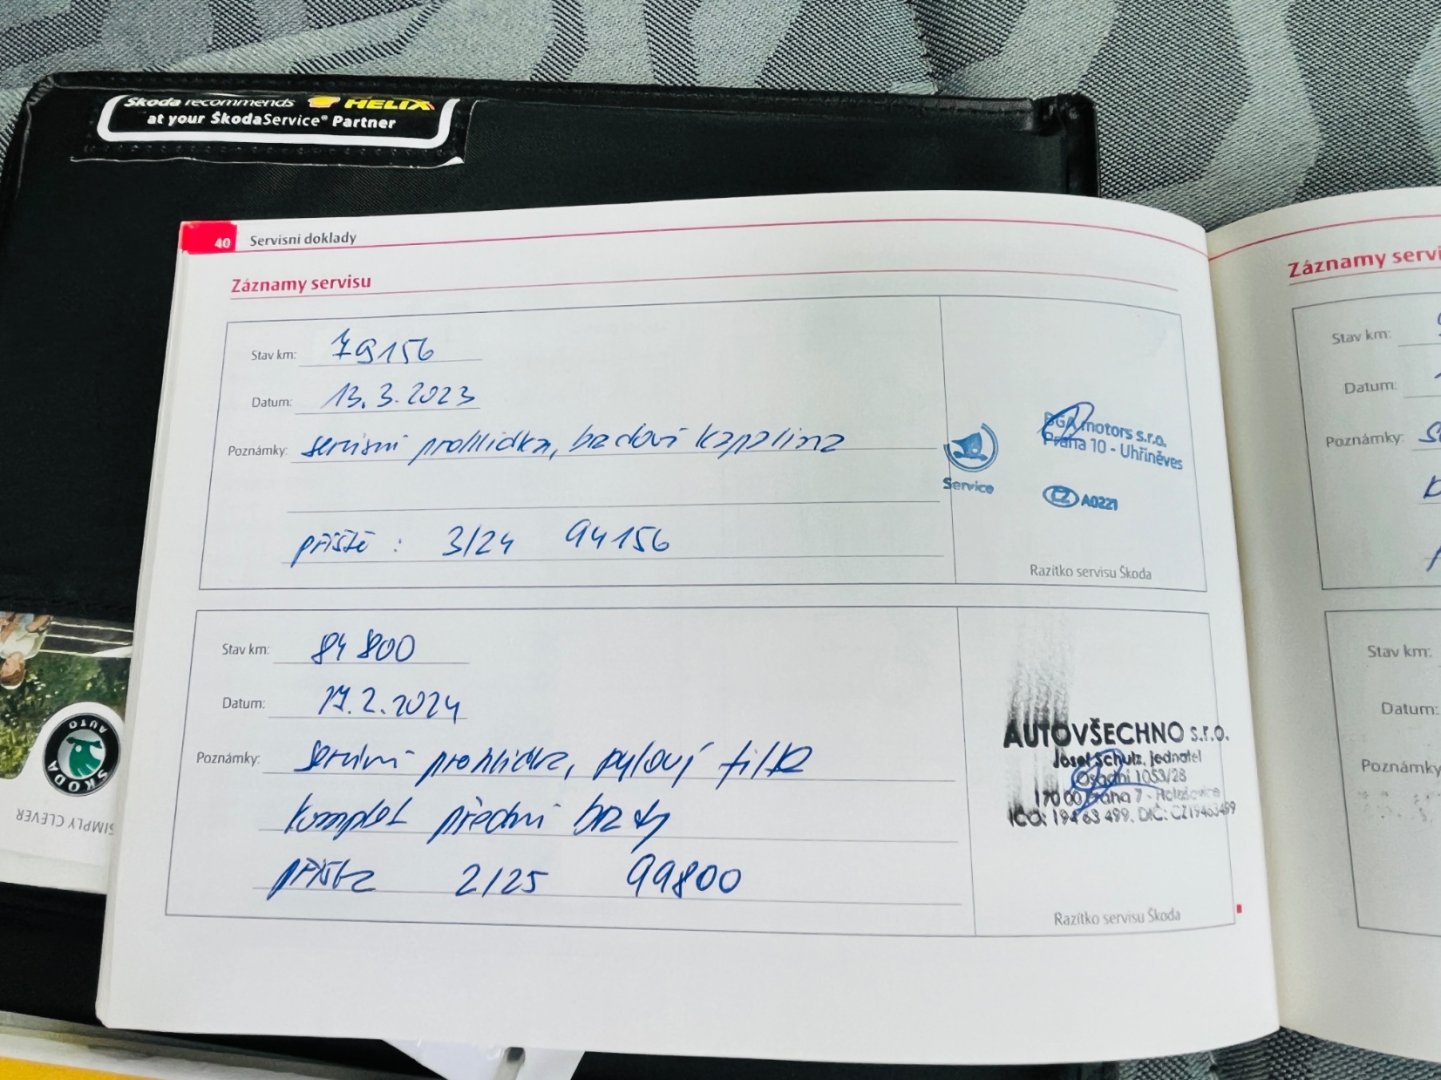 Škoda recommends HELIX
at your ŠkodaService® Partner
40 Servisní doklady
Záznamy servisu
Stav km: 79156
Datum: 13.3.2023
Poznámky: servisní prohlídka, brzdová kapalina
příště: 3/24 94156
Service
BGA motors s.r.o.
Praha 10 - Uhříněves
CZ A0221
Razítko servisu Škoda
Stav km: 84 800
Datum: 17.2.2024
Poznámky: servisní prohlídka, pylový filtr
komplet přední brzdy
příště 2/25 99800
AUTOVŠECHNO s.r.o.
Josef Schulz, jednatel
Osadní 1053/28
170 00 Praha 7 - Holešovice
IČO: 194 63 499, DIČ: CZ19463499
Razítko servisu Škoda
Záznamy servi
Stav km:
Datum:
Poznámky:
Stav km:
Datum:
Poznámky
ŠKODA AUTO
SIMPLY CLEVER